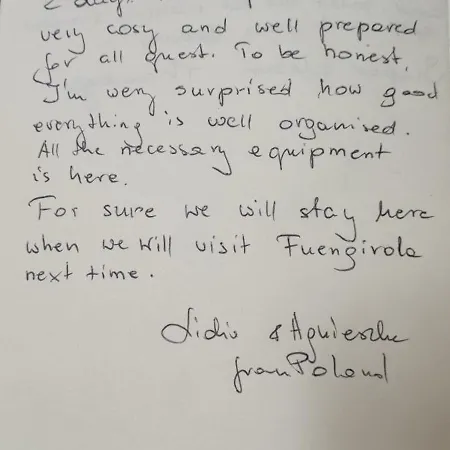 2 days
very cosy and well prepared
for all guest. To be honest,
I'm wery surprised how good
everything is well organised.
All the necessary equipment
is here.
For sure we will stay here
when we will visit Fuengirola
next time.
&
from Poland